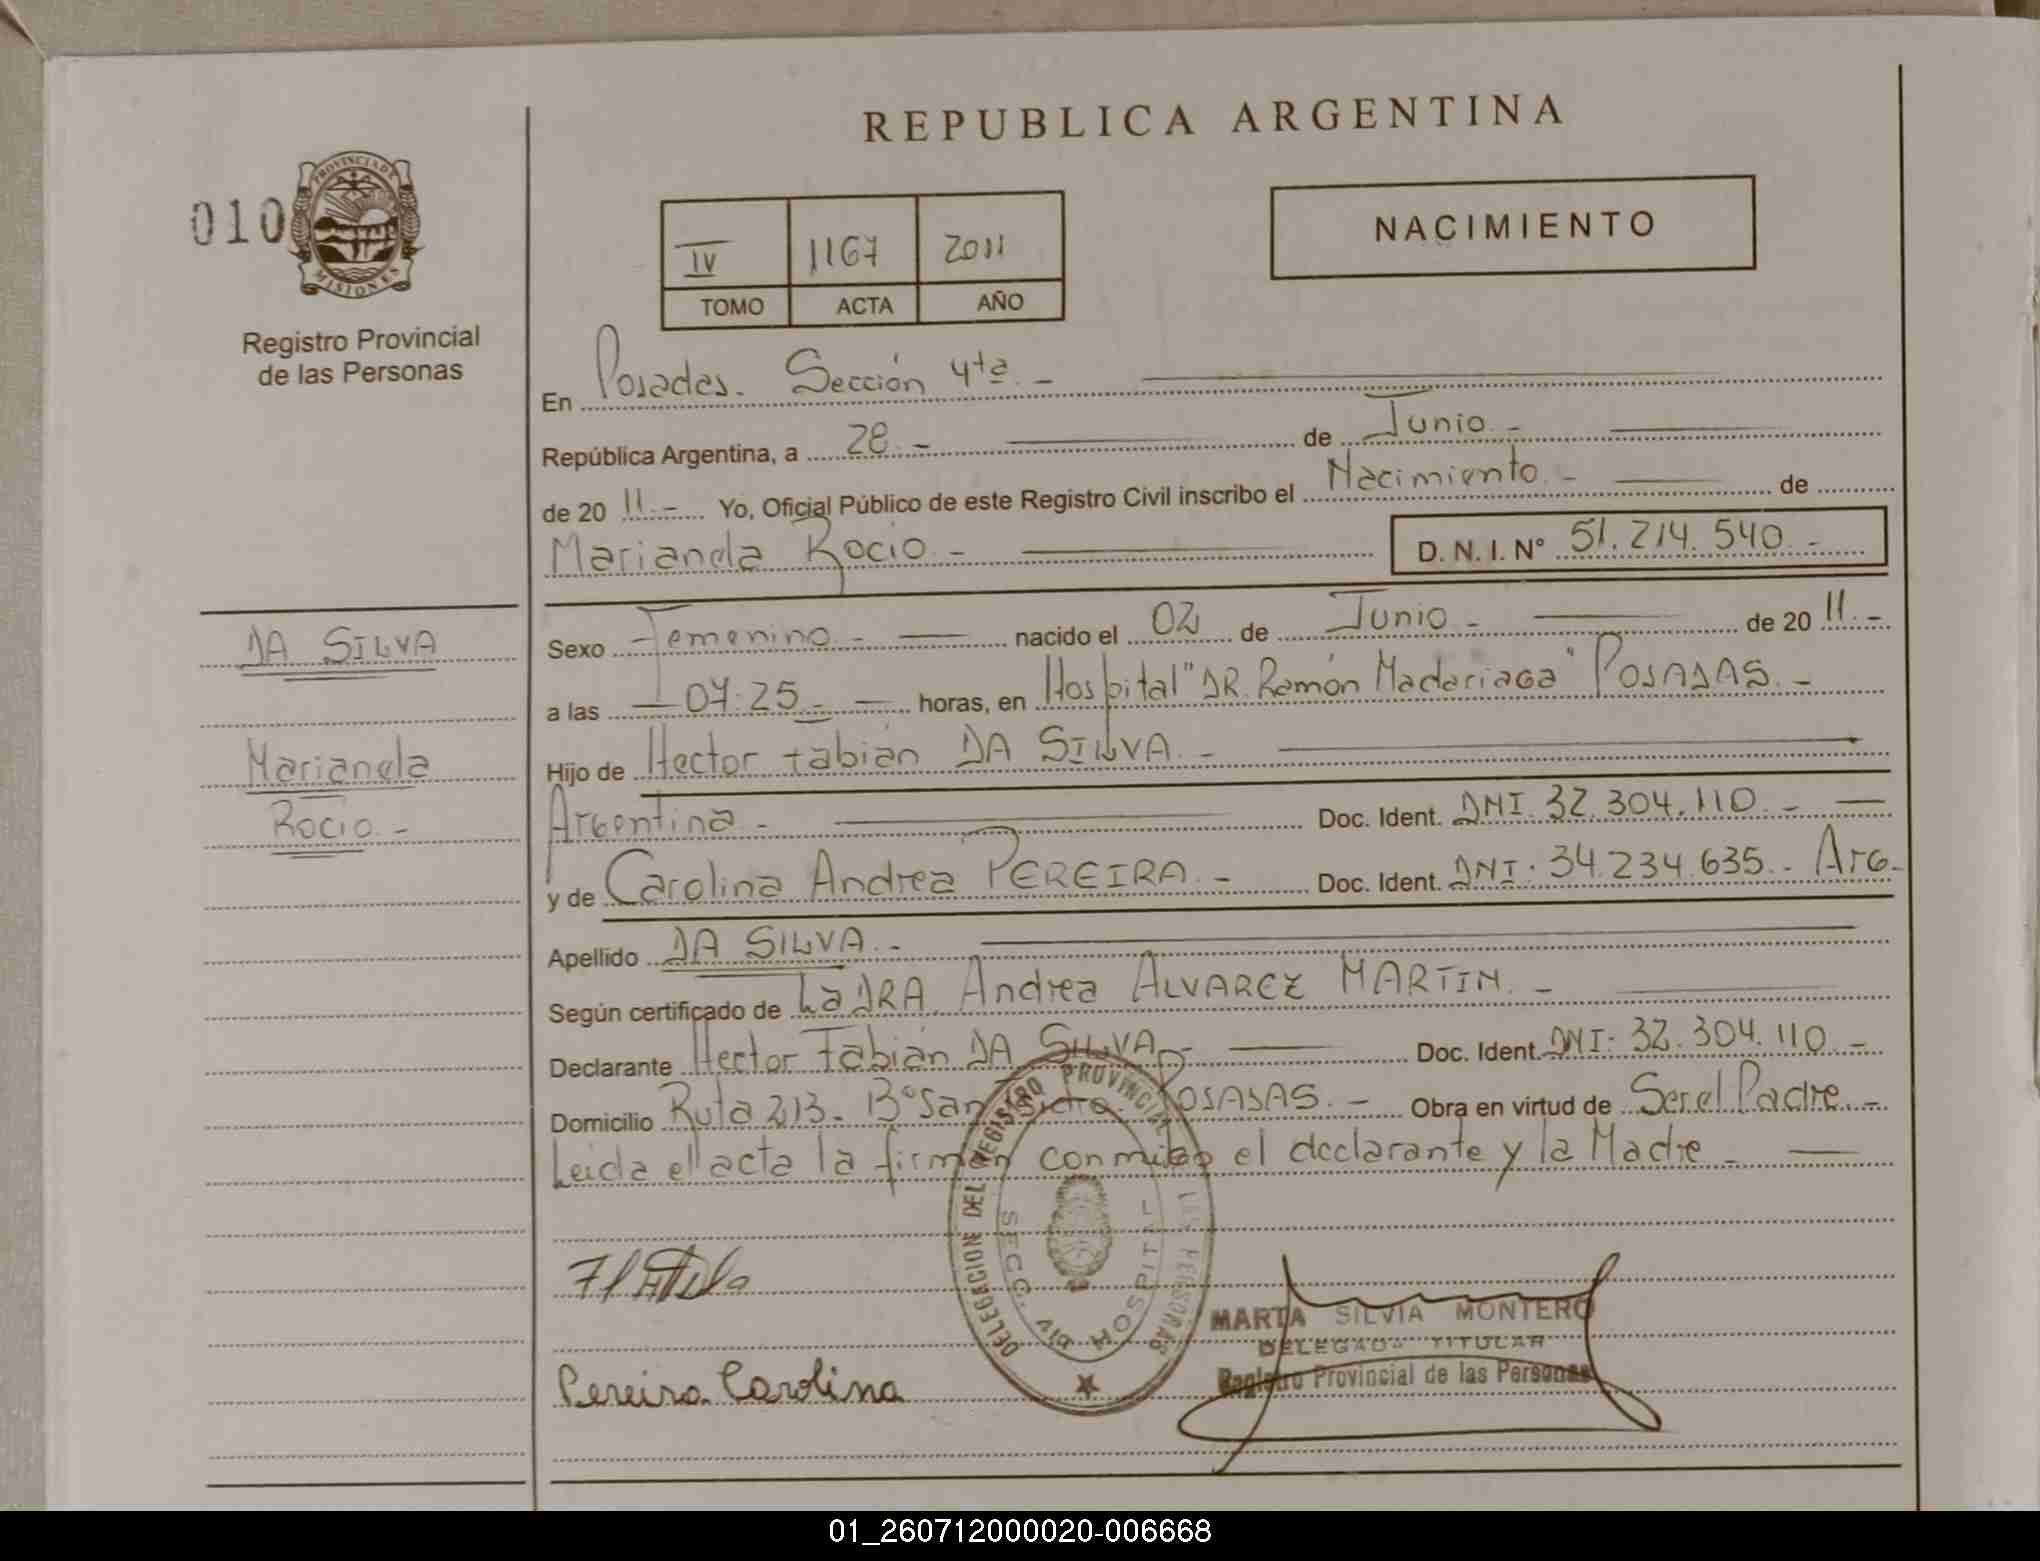 REPUBLICA ARGENTINA
010
PROVINCIA DE MISIONES
Registro Provincial
de las Personas
IV 1167 2011
TOMO ACTA AÑO
NACIMIENTO
En Posadas. Sección 4ta. -
República Argentina, a 28. - de Junio. -
de 20 11. - Yo, Oficial Público de este Registro Civil inscribo el Nacimiento. - de
Marianela Rocio. - D. N. I. Nº 51.214.540. -
DA SILVA
Marianela
Rocio. -
Sexo Femenino. - nacido el 02 de Junio. - de 20 11. -
a las 07:25. - horas, en Hospital "DR. Ramón Madariaga" POSADAS. -
Hijo de Hector Fabián DA SILVA. -
Argentina. - Doc. Ident. DNI. 32.304.110. -
y de Carolina Andrea PEREIRA. - Doc. Ident. DNI. 34.234.635. - Arg.
Apellido DA SILVA. -
Según certificado de La DRA. Andrea ALVAREZ MARTIN. -
Declarante Hector Fabián DA SILVA. - Doc. Ident. DNI. 32.304.110. -
Domicilio Ruta 213. Bº San Isidro. POSADAS. - Obra en virtud de Ser el Padre. -
Leida el acta la firman conmigo el declarante y la Madre. -
DELEGACION DEL REGISTRO PROVINCIAL DE LAS PERSONAS
SECC. HOSPITAL
Pereira Carolina
MARTA SILVIA MONTERO
DELEGADA TITULAR
Registro Provincial de las Personas
01_260712000020-006668